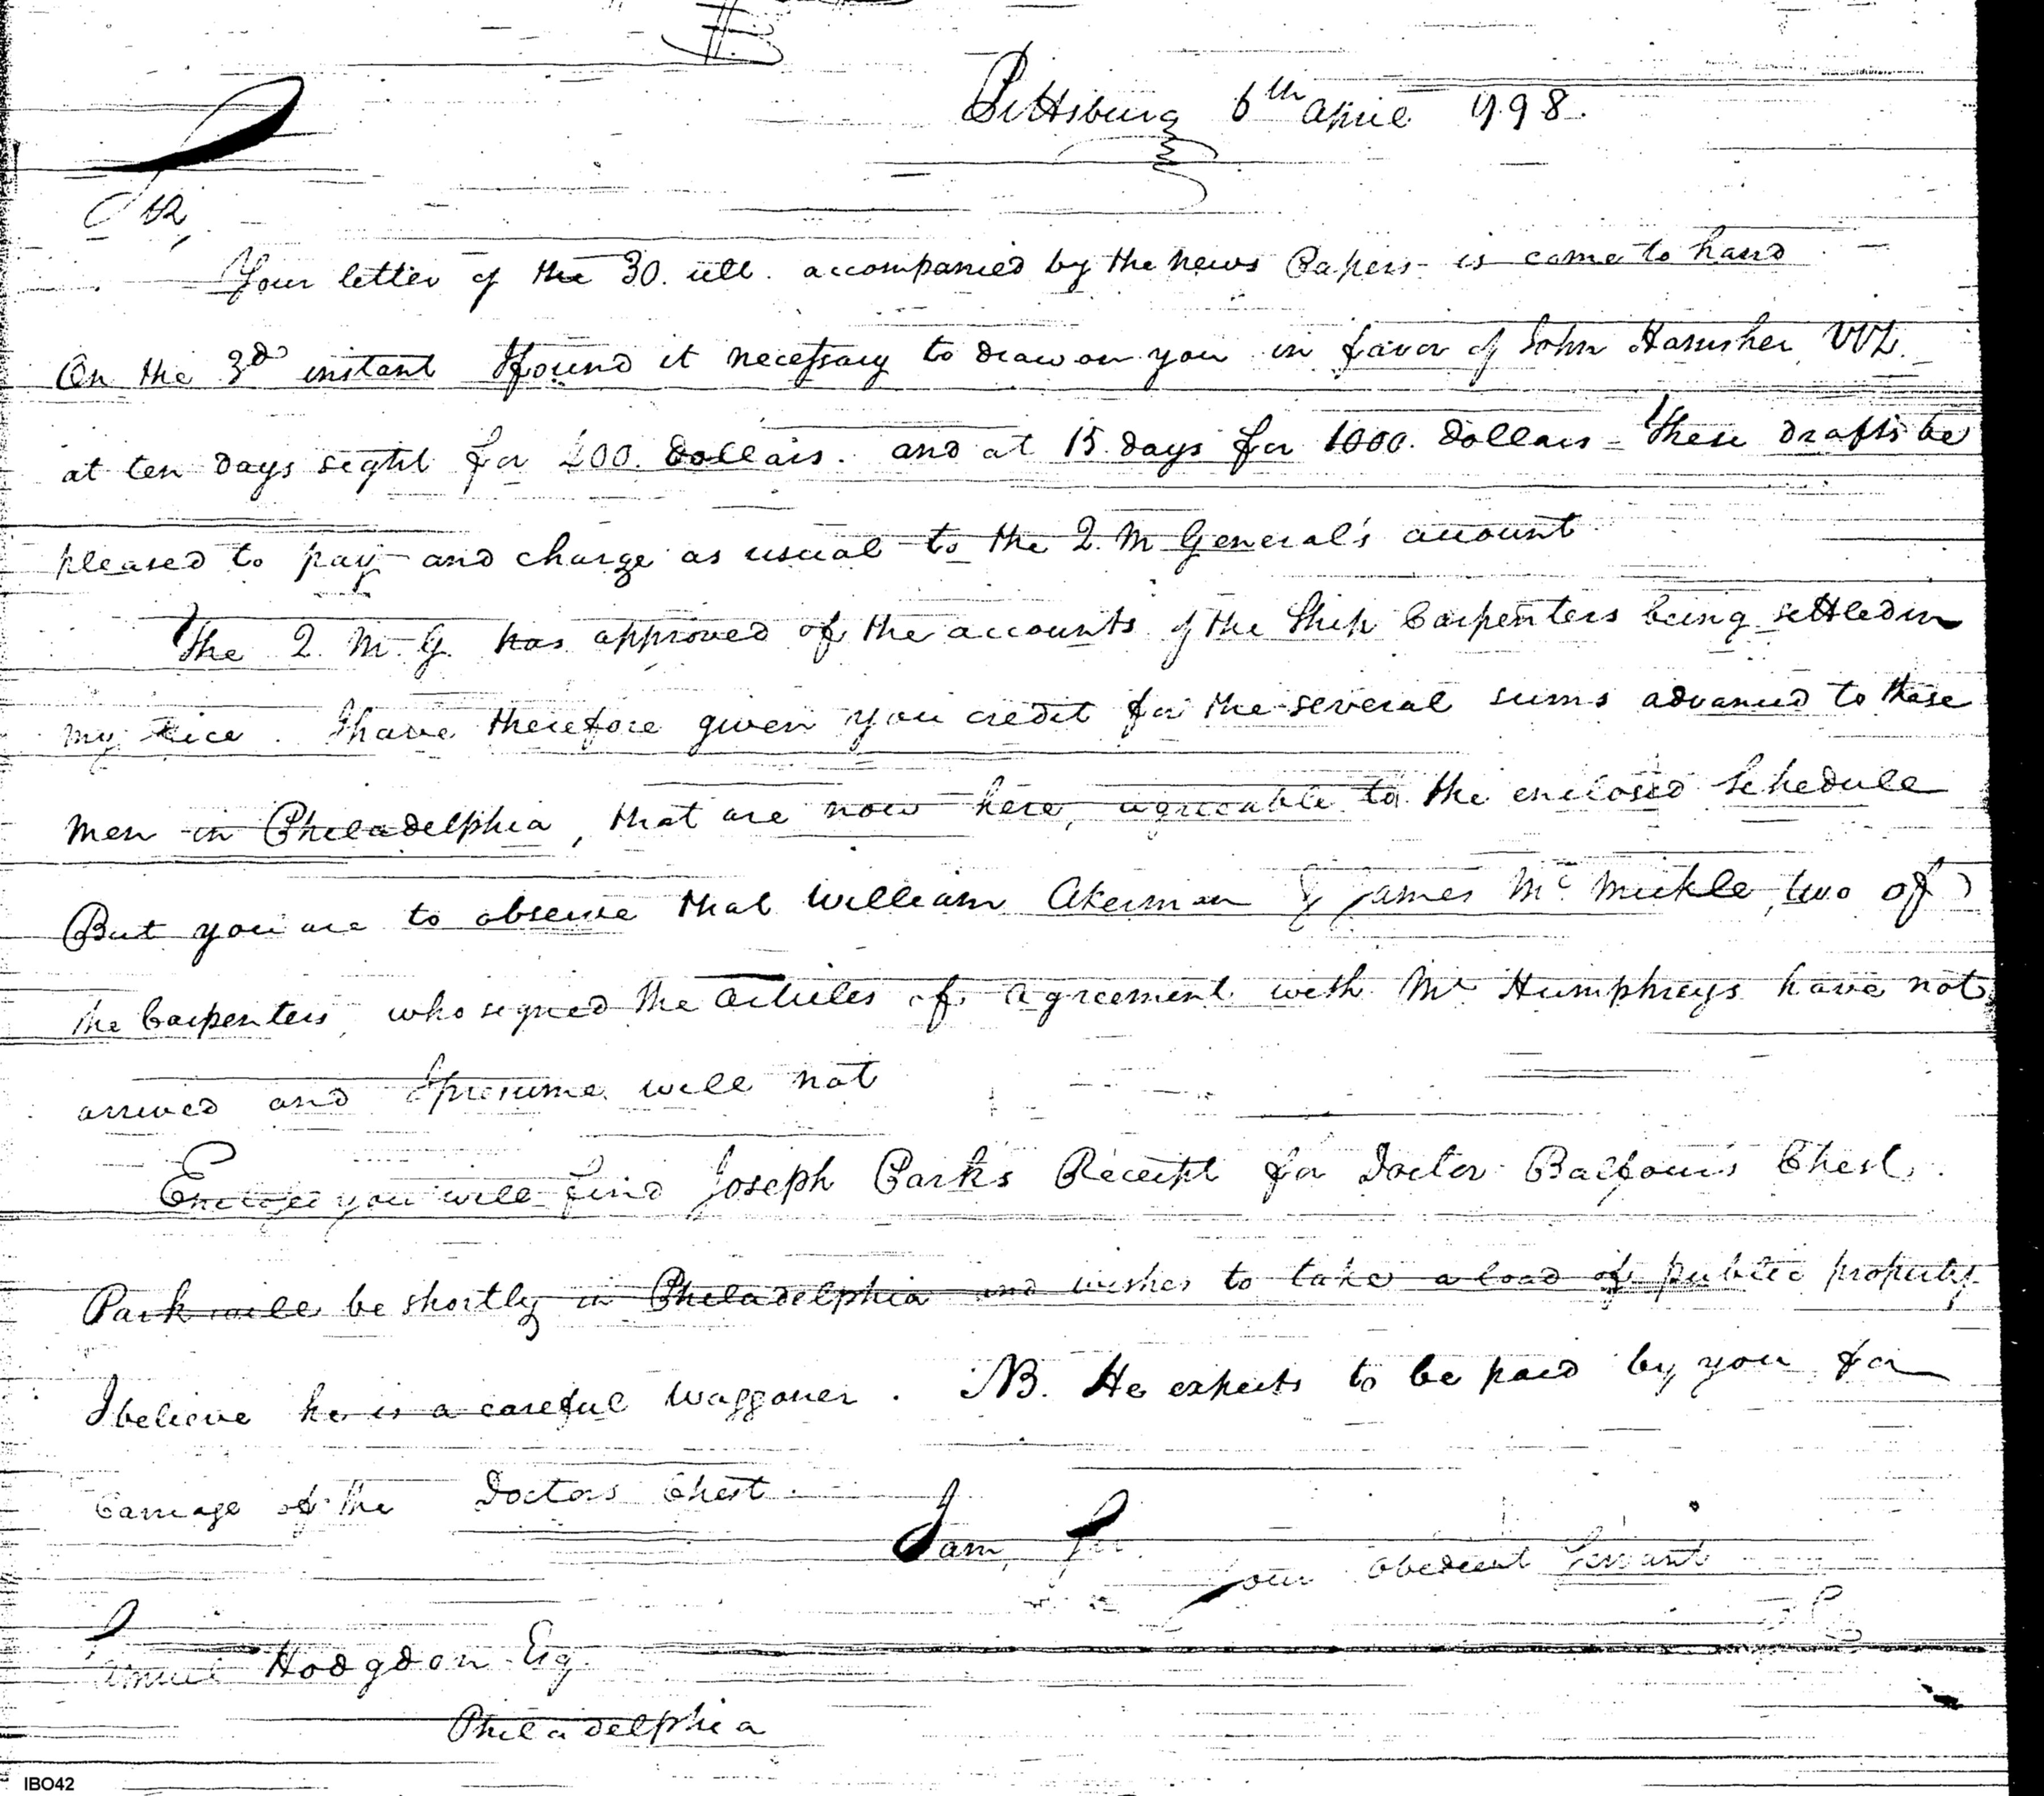 Pittsburg 6th April 1798.
Sir,
Your letter of the 30. ult. accompanied by the News Papers is come to hand
On the 3d instant I found it necessary to draw on you in favor of John Hamsher VIZ.
at ten days sight for 200. Dollars. and at 15 days for 1000. Dollars - These drafts be
pleased to pay and charge as usual to the Q. M General's account
The Q. M. G. has approved of the accounts of the Ship Carpenters being settled in
my . I have therefore given you credit for the several sums advanced to these
men in Philadelphia, that are now here, agreeable to the enclosed Schedule
But you are to observe that William Akerman & James Mc Mickle, two of
the Carpenters, who signed the articles of agreement with Mr Humphreys have not
arrived and I presume will not
Enclosed you will find Joseph Park's Receipt for Doctor Balfour's Chest.
Park will be shortly in Philadelphia and wishes to take a load of public property.
I believe he is a careful Waggoner. NB. He expects to be paid by you for
Carriage of the Doctors Chest.
I am, Sir
Your obedient Servant
Samuel Hodgdon Esq.
Philadelphia
IBO42